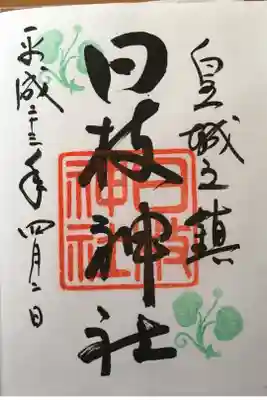 皇城之鎮
日枝神社
平成二十三年四月二日
日枝神社